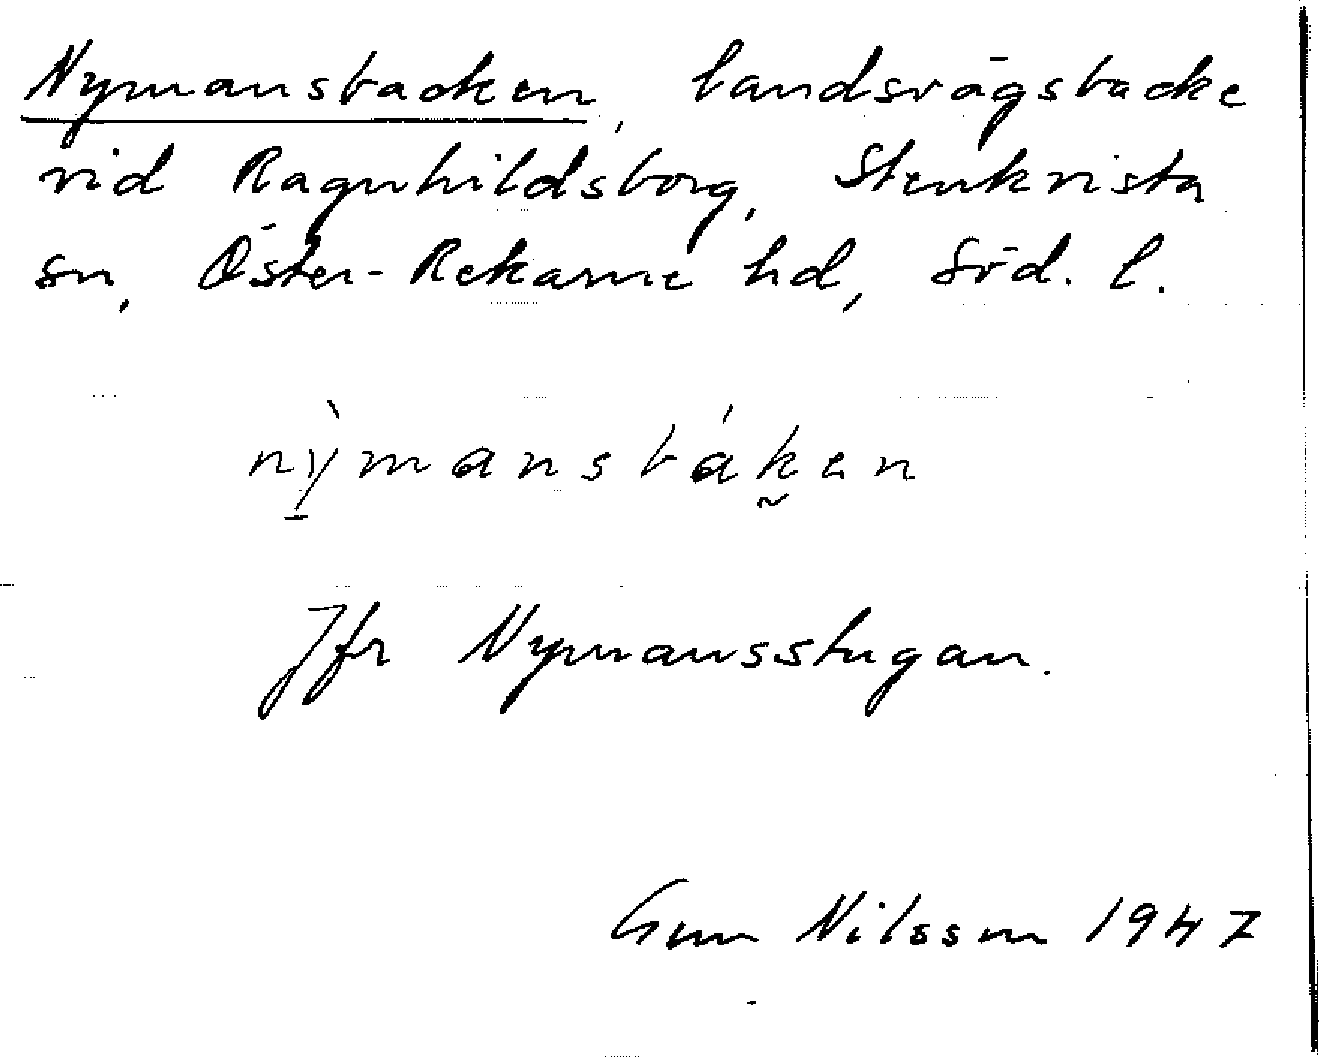 Nymansbacken, landsvägsbacke
vid Ragnhildsborg, Stenkvista
sn, Öster-Rekarne hd, Söd. l.
nỳ̠mansbák̰en
Jfr Nymansstugan.
Gun Nilsson 1947